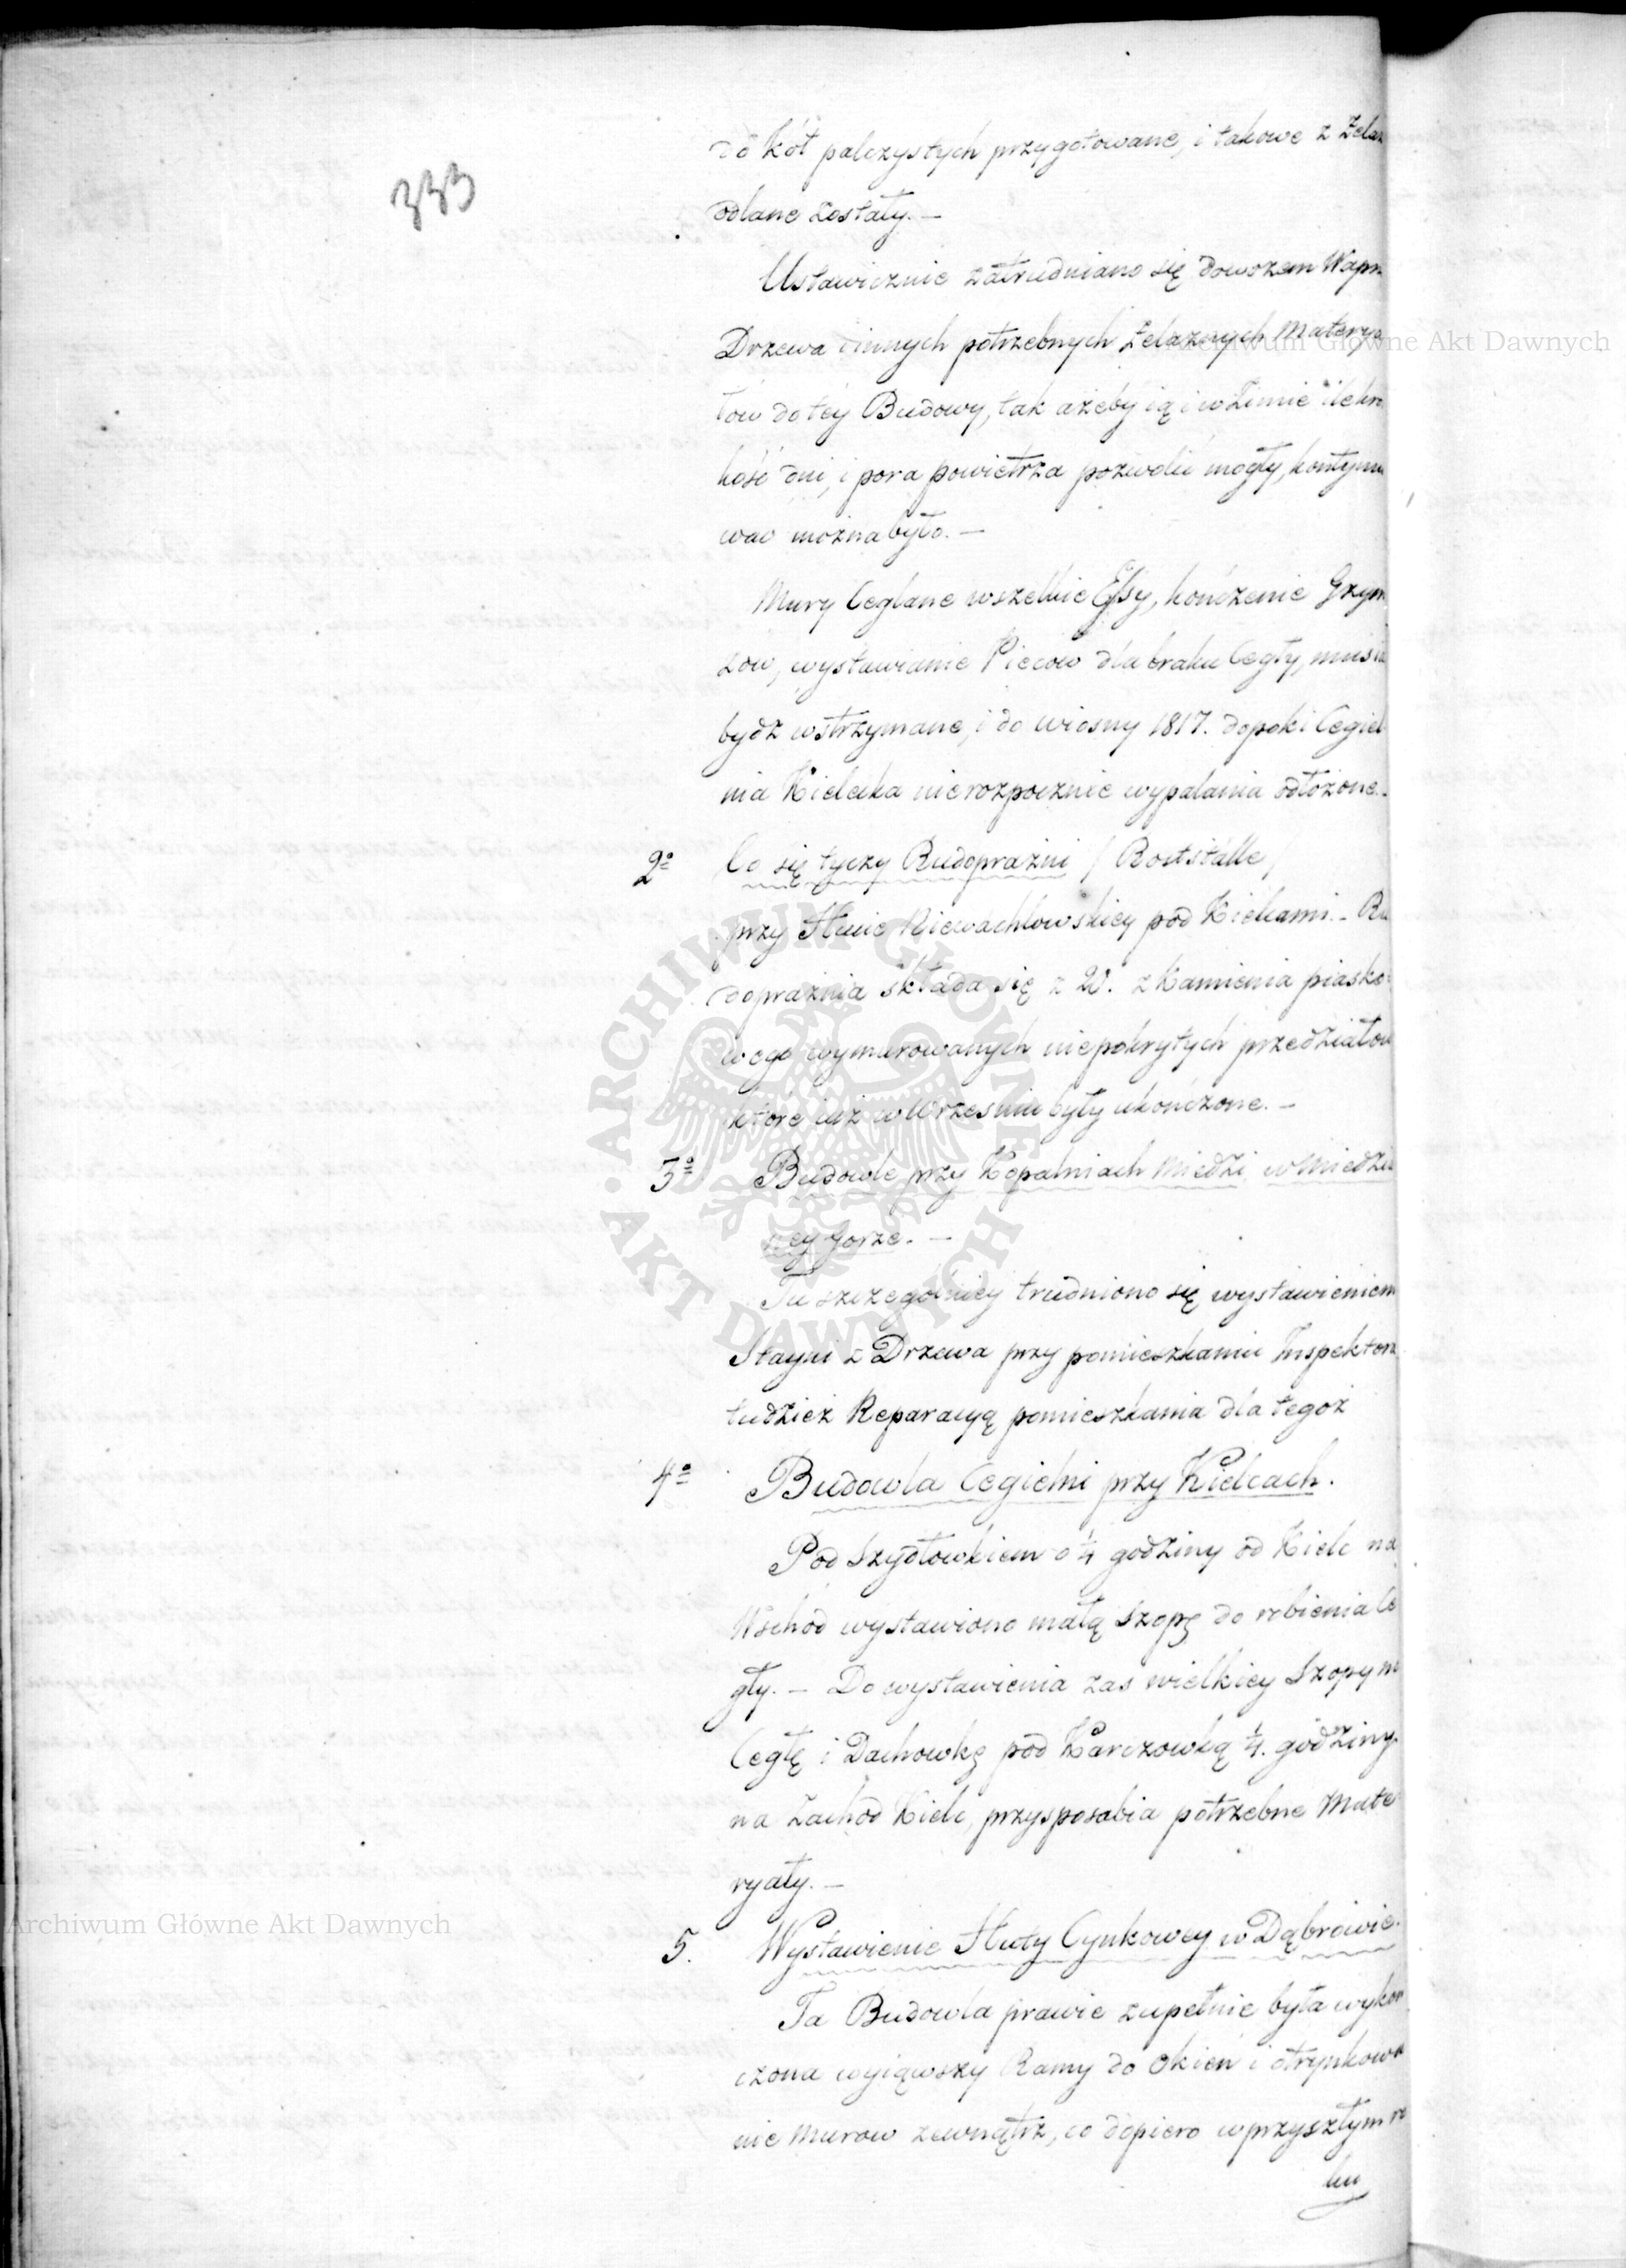 333
do kół palczystych przygotowane, i takowe z Żela
odlane zostały. —
Ustawicznie zatrudniano się dowozem Wapn
Drzewa i innych potrzebnych Żelaznych Matery
łów do téy Budowy, tak ażeby ią i w Zimie ile kró
kość dni, i pora powietrza pozwolić mogły, kontynu
wać można było. —
Mury Ceglane wszelkie, kończenie Gzym
zow, wystawianie Piecow dla braku Cegły, musia
bydź wstrzymane, i do wiosny 1817. dopoki Cegiel
nia Kielecka nierozpocznie wypalania odłożone. -
2o Co się tyczy Rudoprażni / Rostställe /
przy Hucie Niewachlowskiey pod Kielcami. - Ru
doprażnia składa się z 20. z Kamienia piasko
wego wymurowanych niepokrytych przedziałow
które iuż w Wrześniu były ukończone. —
3o Budowle przy Kopalniach Miedzi w Miedzia
ney Gorze. —
Tu szczegolniey trudniono się wystawieniem
Stayni z Drzewa przy pomieszkaniu Inspektora
tudzież Reparacyą pomieszkania dla tegoż
4o Budowla Cegielni przy Kielcach.
Pod Szydłowkiem o ¼ godziny od Kielc na
Wschód wystawiono małą szopę do robienia Ce
gły. — Do wystawienia zas wielkiey Szopy na
Cegłę i Dachowkę pod Karczowką ¼. godziny
na Zachód Kielc, przysposabia potrzebne Mate
ryały. —
5. Wystawienie Huty Cynkowey w Dąbrowie.
Ta Budowla prawie zupełnie była wykoń
czona wyiąwszy Ramy do Okien i otynkowa
nie Murow zewnątrz, co dopiero w przyszłym ro
ku
Archiwum Główne Akt Dawnych
Archiwum Główne Akt Dawnych
ARCHIWUM GŁÓWNE AKT DAWNYCH